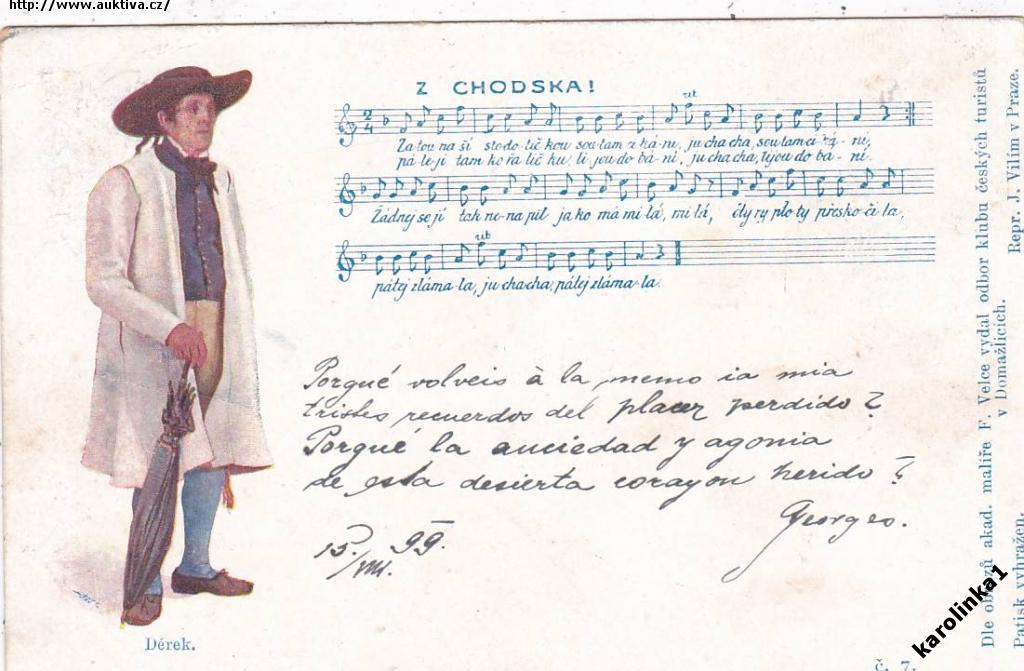 http://www.auktiva.cz/
Z CHODSKA!
Za tou na ší sto do lič kou sou tam ci ká ni, ju cha cha, sou tam ci ká - ni,
pá le jí tam ko řa lič ku, li jou do bá ní, ju cha cha, lijou do bá - ní.
Žádnej se jí tak ne na pil ja ko má mi lá, mi lá, čty ry plo ty přesko či la,
pátej zláma-la, ju cha cha, pátej zláma-la.
Porqué volveis à la memo ia mia
tristes recuerdos del placer perdido?
Porqué la anciedad y agonia
de esta desierta corayon herido?
Georges.
15./VIII. 99.
Dérek.
Dle obrazů akad. malíře F. Velce vydal odbor klubu českých turistů
v Domažlicích. Repr. J. Vilím v Praze.
Patisk vyhražen.
č. 7.
karolinka1